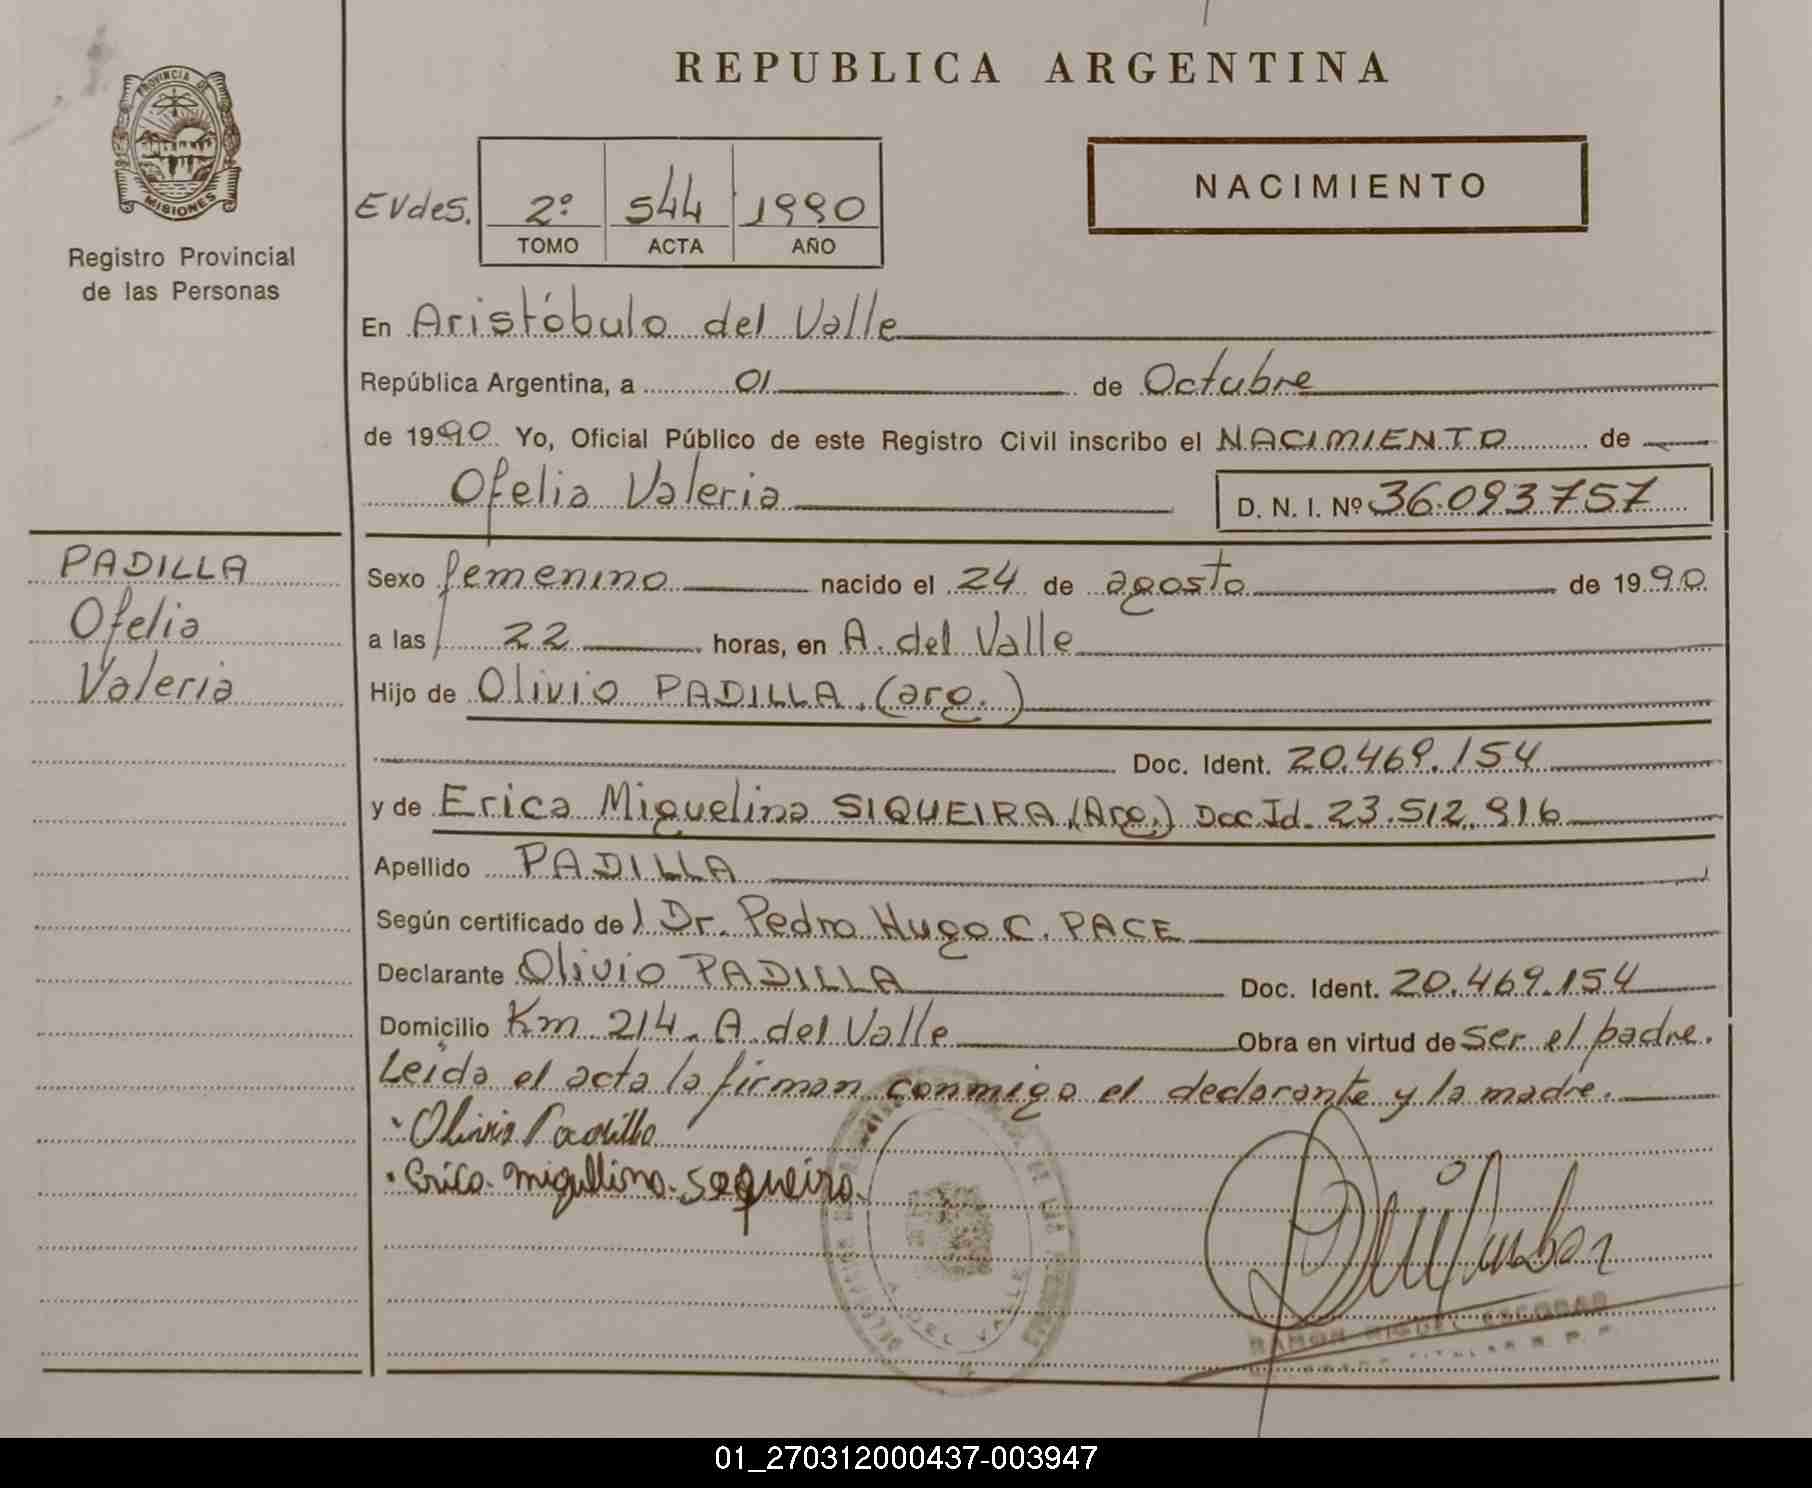 REPUBLICA ARGENTINA
PROVINCIA DE
MISIONES
Registro Provincial
de las Personas
NACIMIENTO
EVdes. 2º 544 1990
TOMO ACTA AÑO
En Aristóbulo del Valle
República Argentina, a 01 de Octubre
de 1990 Yo, Oficial Público de este Registro Civil inscribo el NACIMIENTO de
Ofelia Valeria D. N. I. Nº 36.093757
PADILLA
Ofelia
Valeria
Sexo femenino nacido el 24 de agosto de 1990
a las 22 horas, en A. del Valle
Hijo de Olivio PADILLA (arg.)
Doc. Ident. 20.469.154
y de Erica Miguelina SIQUEIRA (Arg.) Doc Id. 23.512.916
Apellido PADILLA
Según certificado de Dr. Pedro Hugo C. PACE
Declarante Olivio PADILLA Doc. Ident. 20.469.154
Domicilio Km 214. A. del Valle Obra en virtud de ser el padre.
Leida el acta la firman conmigo el declarante y la madre.
Olivio Padilla
Erica Miguelina Sequeira
A. DEL VALLE
RAMON MIGUEL ESCOBAR
TITULAR R. P. P.
01_270312000437-003947